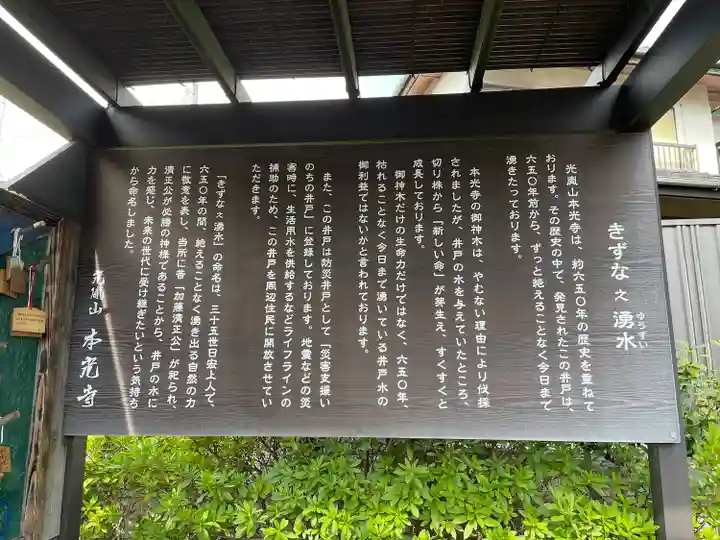 きずな之湧水
ゆうすい
光嵐山本光寺は、約六五〇年の歴史を重ねて
おります。その歴史の中で、発見されたこの井戸は、
六五〇年前から、ずっと絶えることなく今日まで
湧きたっております。
本光寺の御神木は、やむない理由により伐採
されましたが、井戸の水を与えていたところ、
切り株から「新しい命」が芽生え、すくすくと
成長しております。
御神木だけの生命力だけではなく、六五〇年、
枯れることなく今日まで湧いている井戸水の
御利益ではないかと言われております。
また、この井戸は防災井戸として「災害支援い
のちの井戸」に登録しております。地震などの災
害時に、生活用水を供給するなどライフラインの
補助のため、この井戸を周辺住民に開放させてい
ただきます。
「きずな之湧水」の命名は、三十五世日宏上人で、
六五〇年の間、絶えることなく湧き出る自然の力
に敬意を表し、当所に昔「加藤清正公」が祀られ、
清正公が必勝の神様であることから、井戸の水に
力を感じ、未来の世代に受け継ぎたいという気持ち
から命名しました。
光嵐山 本光寺